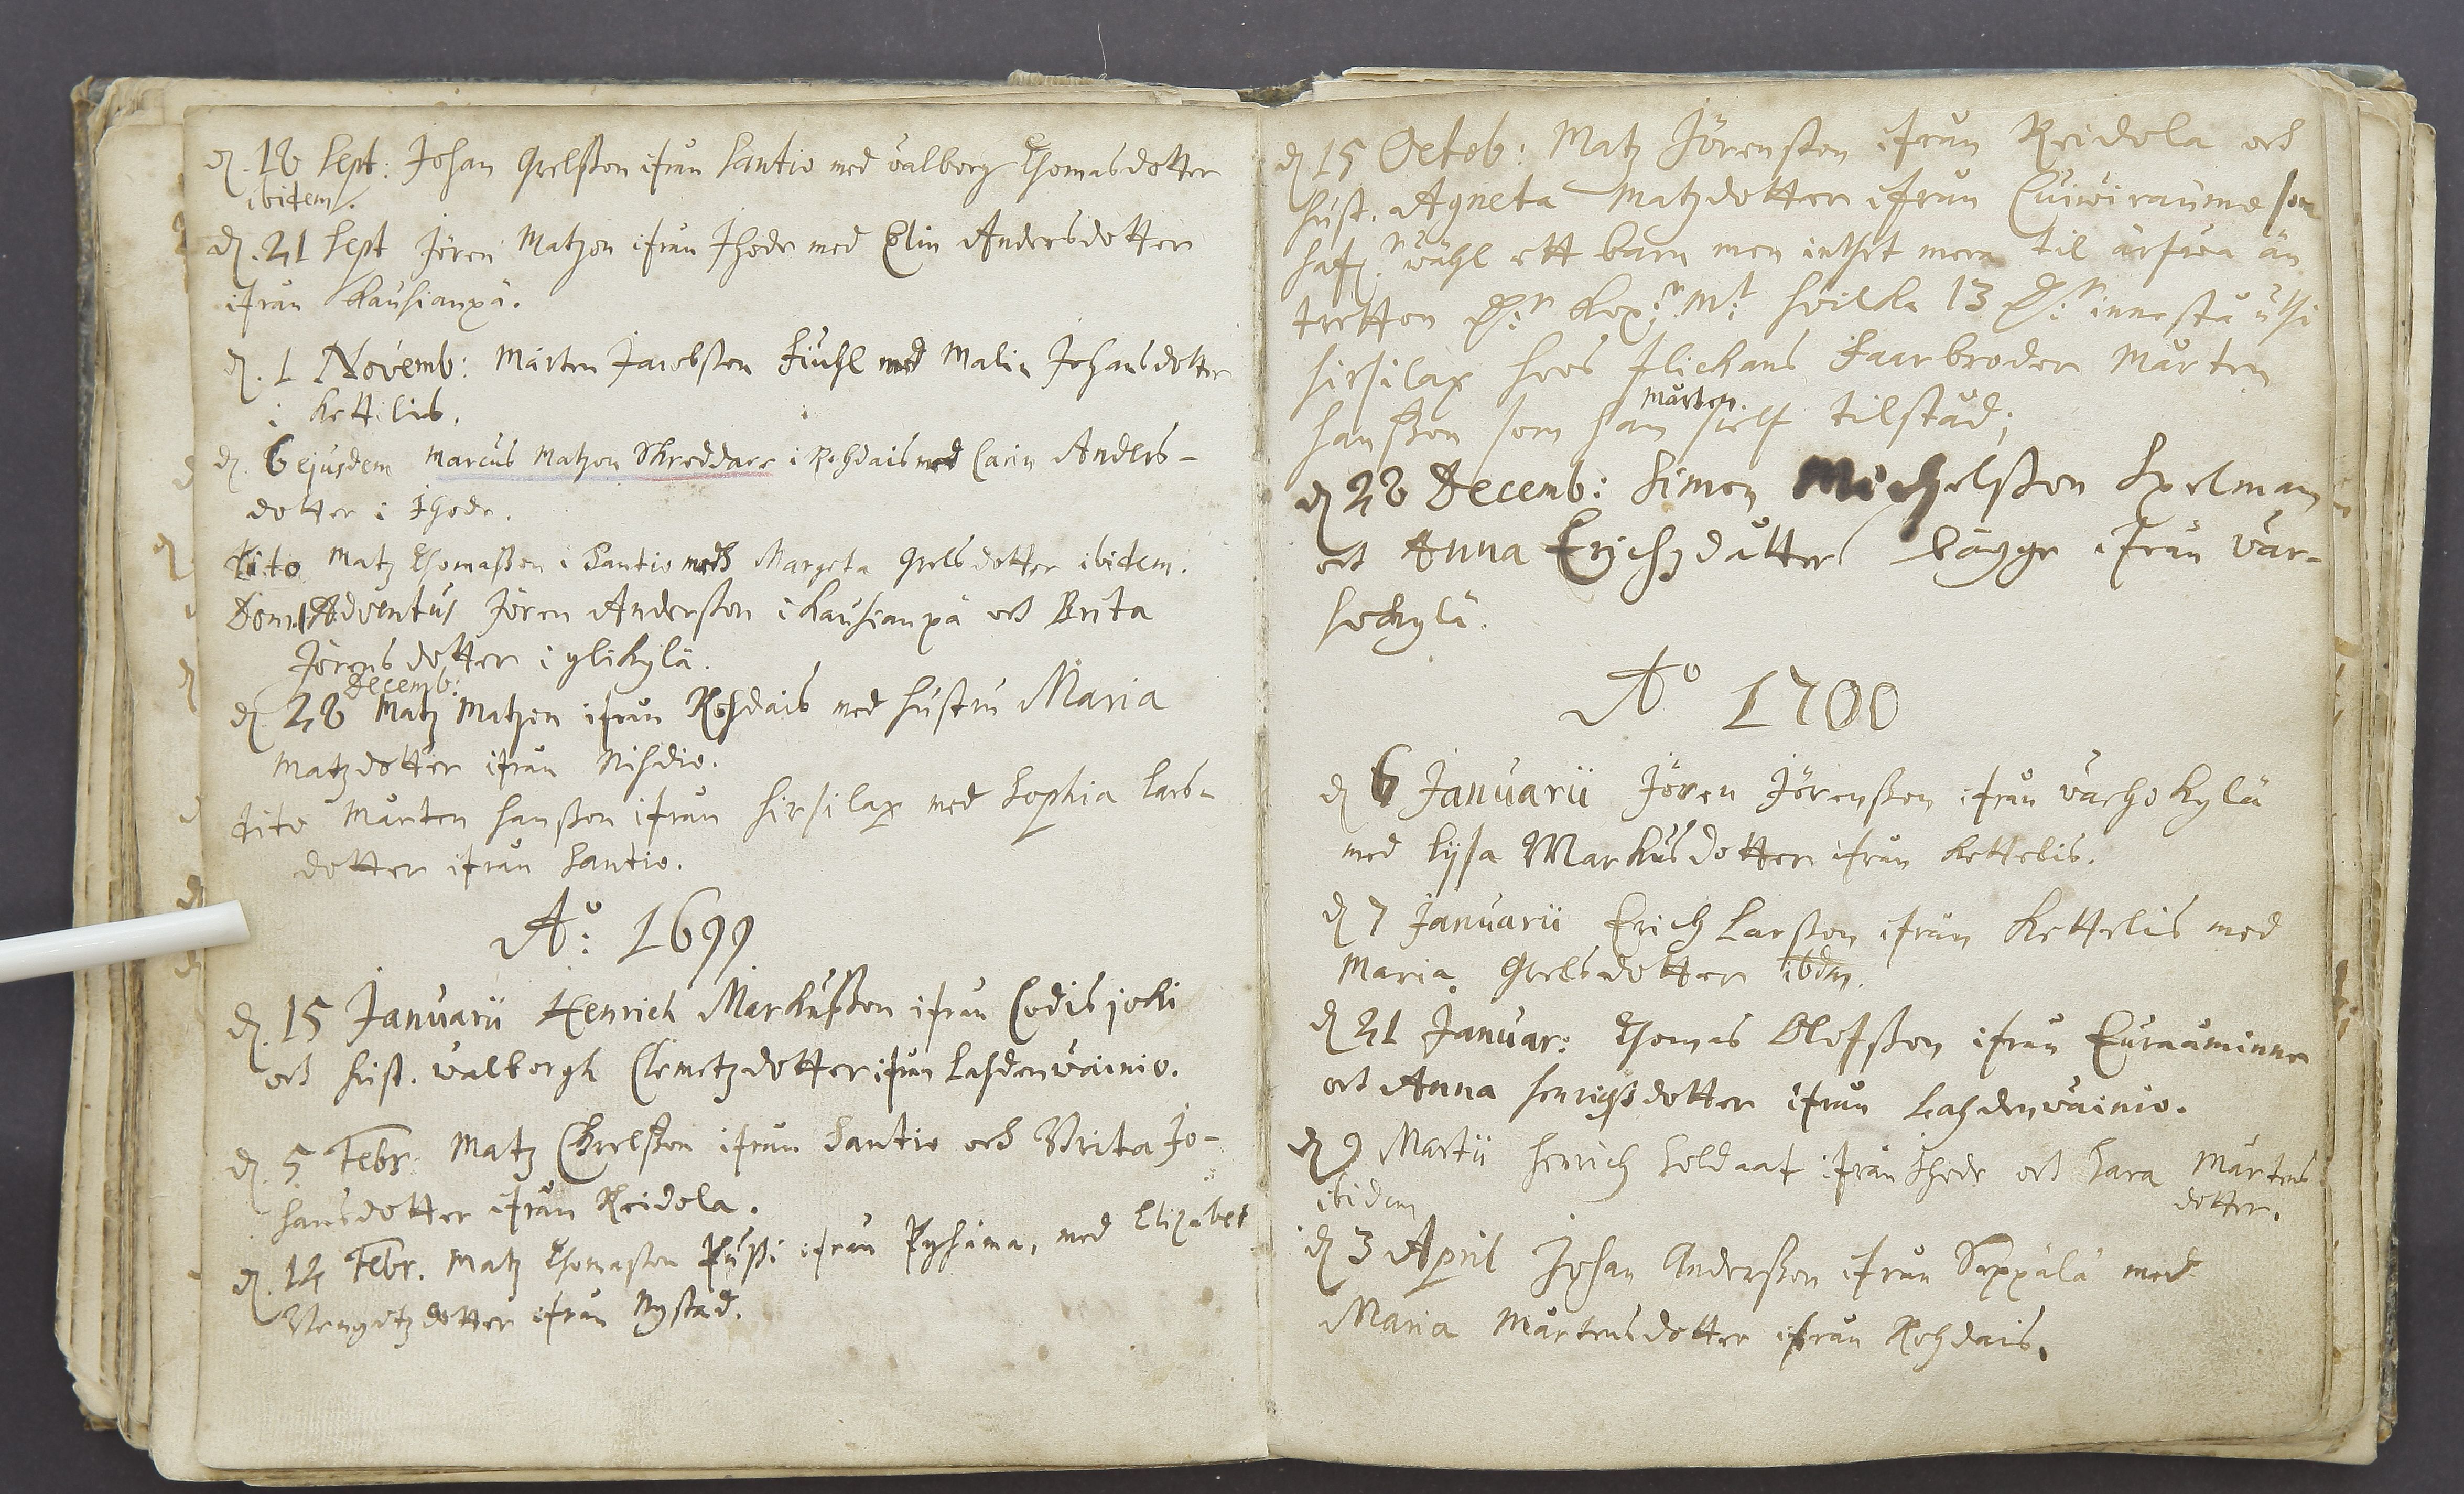 d. 18 Sept: Johan Grelsson ifrån Santio med Walborg Thomasdotter
ibidem.
d. 21 Sept Jören Matzon ifrån Ihode med Elin Andersdotter
ifrån Kauhianpä.
d. 1 Novemb: Mårten Jacobsson med Malin Johansdotter
i Kettelis.
d. 6 ejusdem Marcus Matzon Skreddare i Rohdais med Carin Anders-
dotter i Ihode.
Dito Matz Thomasson i Santio med Margeta Grelsdotter ibidem.
Dom: 1 Adventus Jören Andersson i Kauhianpä och Brita
Jörensdotter i Ylikylä.
Decemb:
d. 28 Matz Matzon ifrån Rohdais med hustru Maria
Matzdotter ifrån Nihdio.
dito Mårten Hansson ifrån Hirsilax med Sophia Lars-
dotter ifrån Santio.
Ao: 1699
d. 15 Januarii Henrich Markusson ifrån Codisjoki
och hust. Walborgh Clemetzdotter ifrån Lahdenwainio.
d. 5 Febr. Matz Grelsson ifrån Santio och Brita Jo-
hansdotter ifrån Reidola.
d. 12 Febr. Matz Thomasson ifrån Pyhäma, med Elizabet
Bengitzdotter ifrån Nystad.
d 15 Octob: Matz Jörensson ifrån Reidola och
hust. Agneta Matzdotter ifrån Cuiwiraume som
hafr wähl ett barn men inthet mera til ärfwa än
tretton Dr Kopr Mt hvilka 13 Dr innestå uthi
Hirsilax hoos flickans Faarbroder Mårten
Hansson som han Mårten sielf tilstäd;
d 28 Decemb: Simon Michelsson Spelman
och Anna Erichzdåtter bägge ifrån Var-
hokylä.
Ao 1700
d 6 Januarii Jören Jörensson ifrån Varhokylä
med Lysa Markusdotter ifrån Kettelis.
d 7 Januarii Erich Larsson ifrån Kettelis med
Maria Grelsdotter ibdm.
d 21 Januar: Thomas Olofsson ifrån Euraåminne
och Anna Henrichsdotter ifrån Lahdenwainio.
d 9 Martii Henrich Soldaat ifrån Ihode och Sara Mårtens
ibidem dotter.
d 3 April Johan Andersson ifrån Seppälä med
Maria Mårtensdotter ifrån Rohdais.